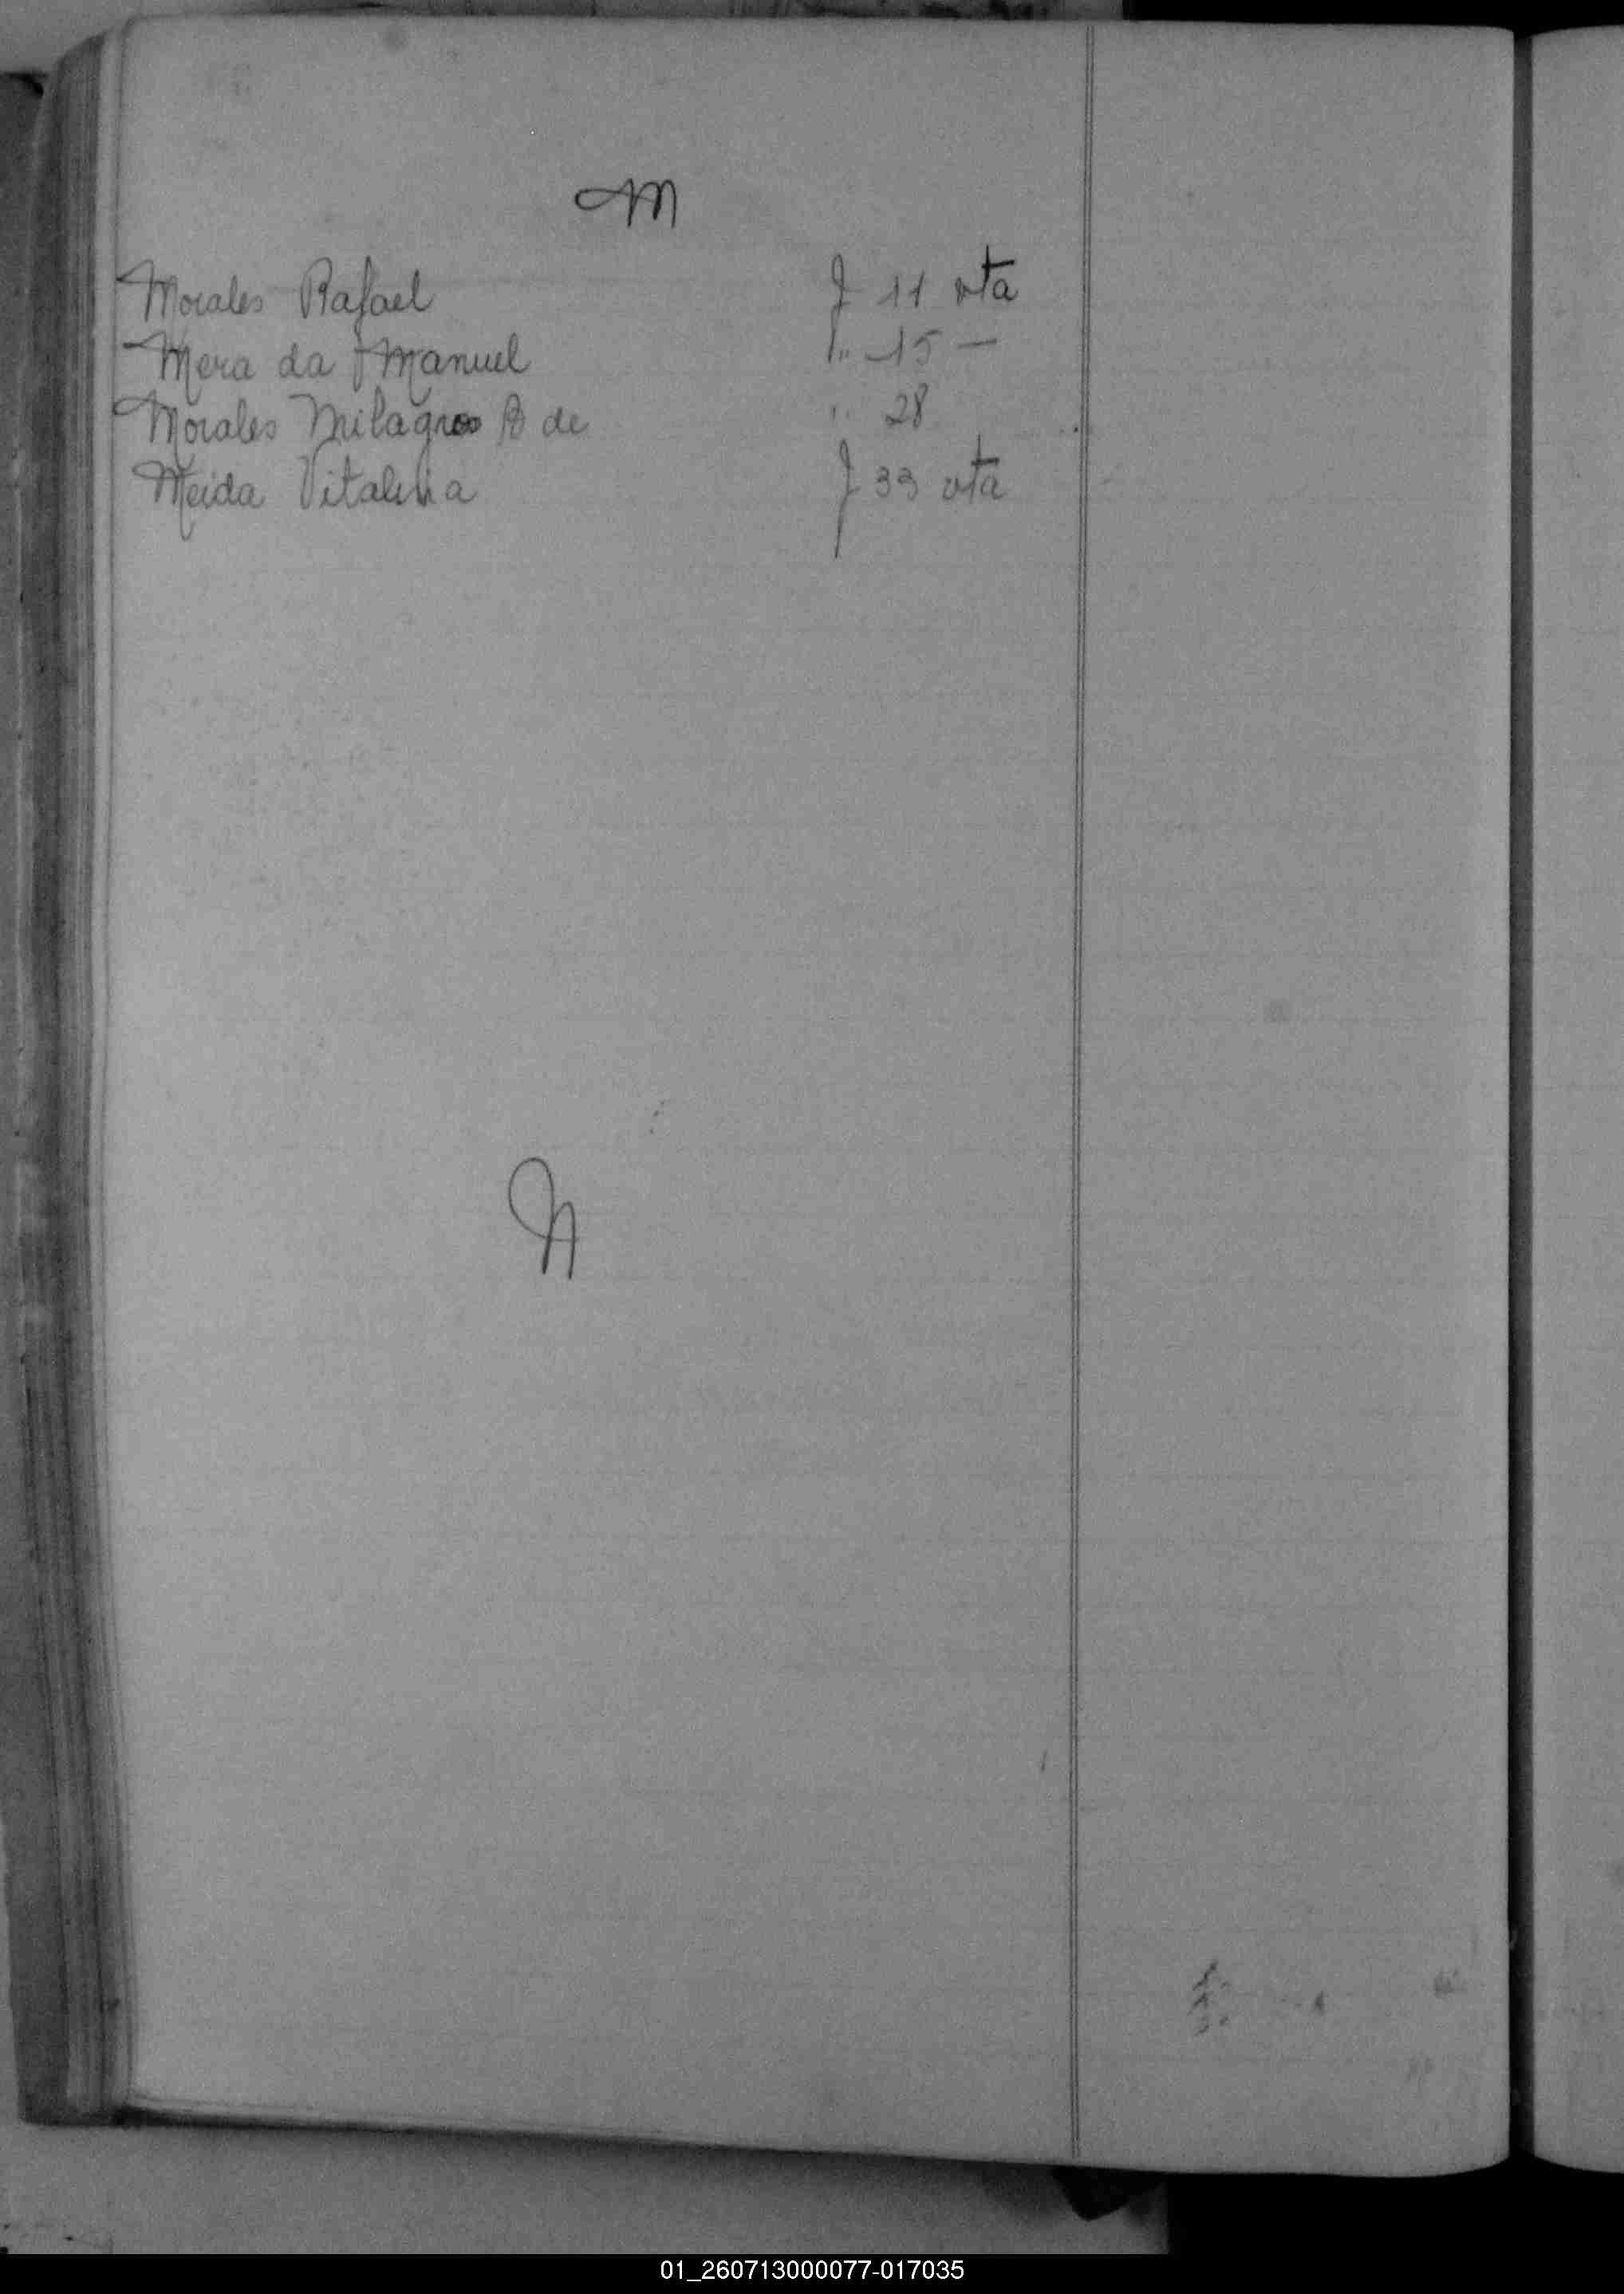 M
Morales Rafael f 11 vta
Mera da Manuel " 15 —
Morales Milagros A de " 28
Meida Vitalina f 33 vta
N
01_260713000077-017035